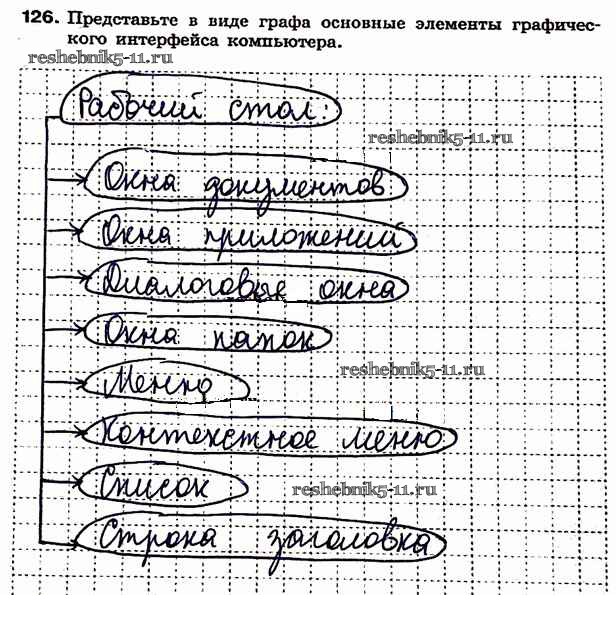 126. Представьте в виде графа основные элементы графичес-
кого интерфейса компьютера.
reshebnik5-11.ru
Рабочий стол.
reshebnik5-11.ru
Окна документов
Окна приложений
Диалоговые окна
Окна папок
reshebnik5-11.ru
Меню
Контекстное меню
Список
reshebnik5-11.ru
Строка заголовка